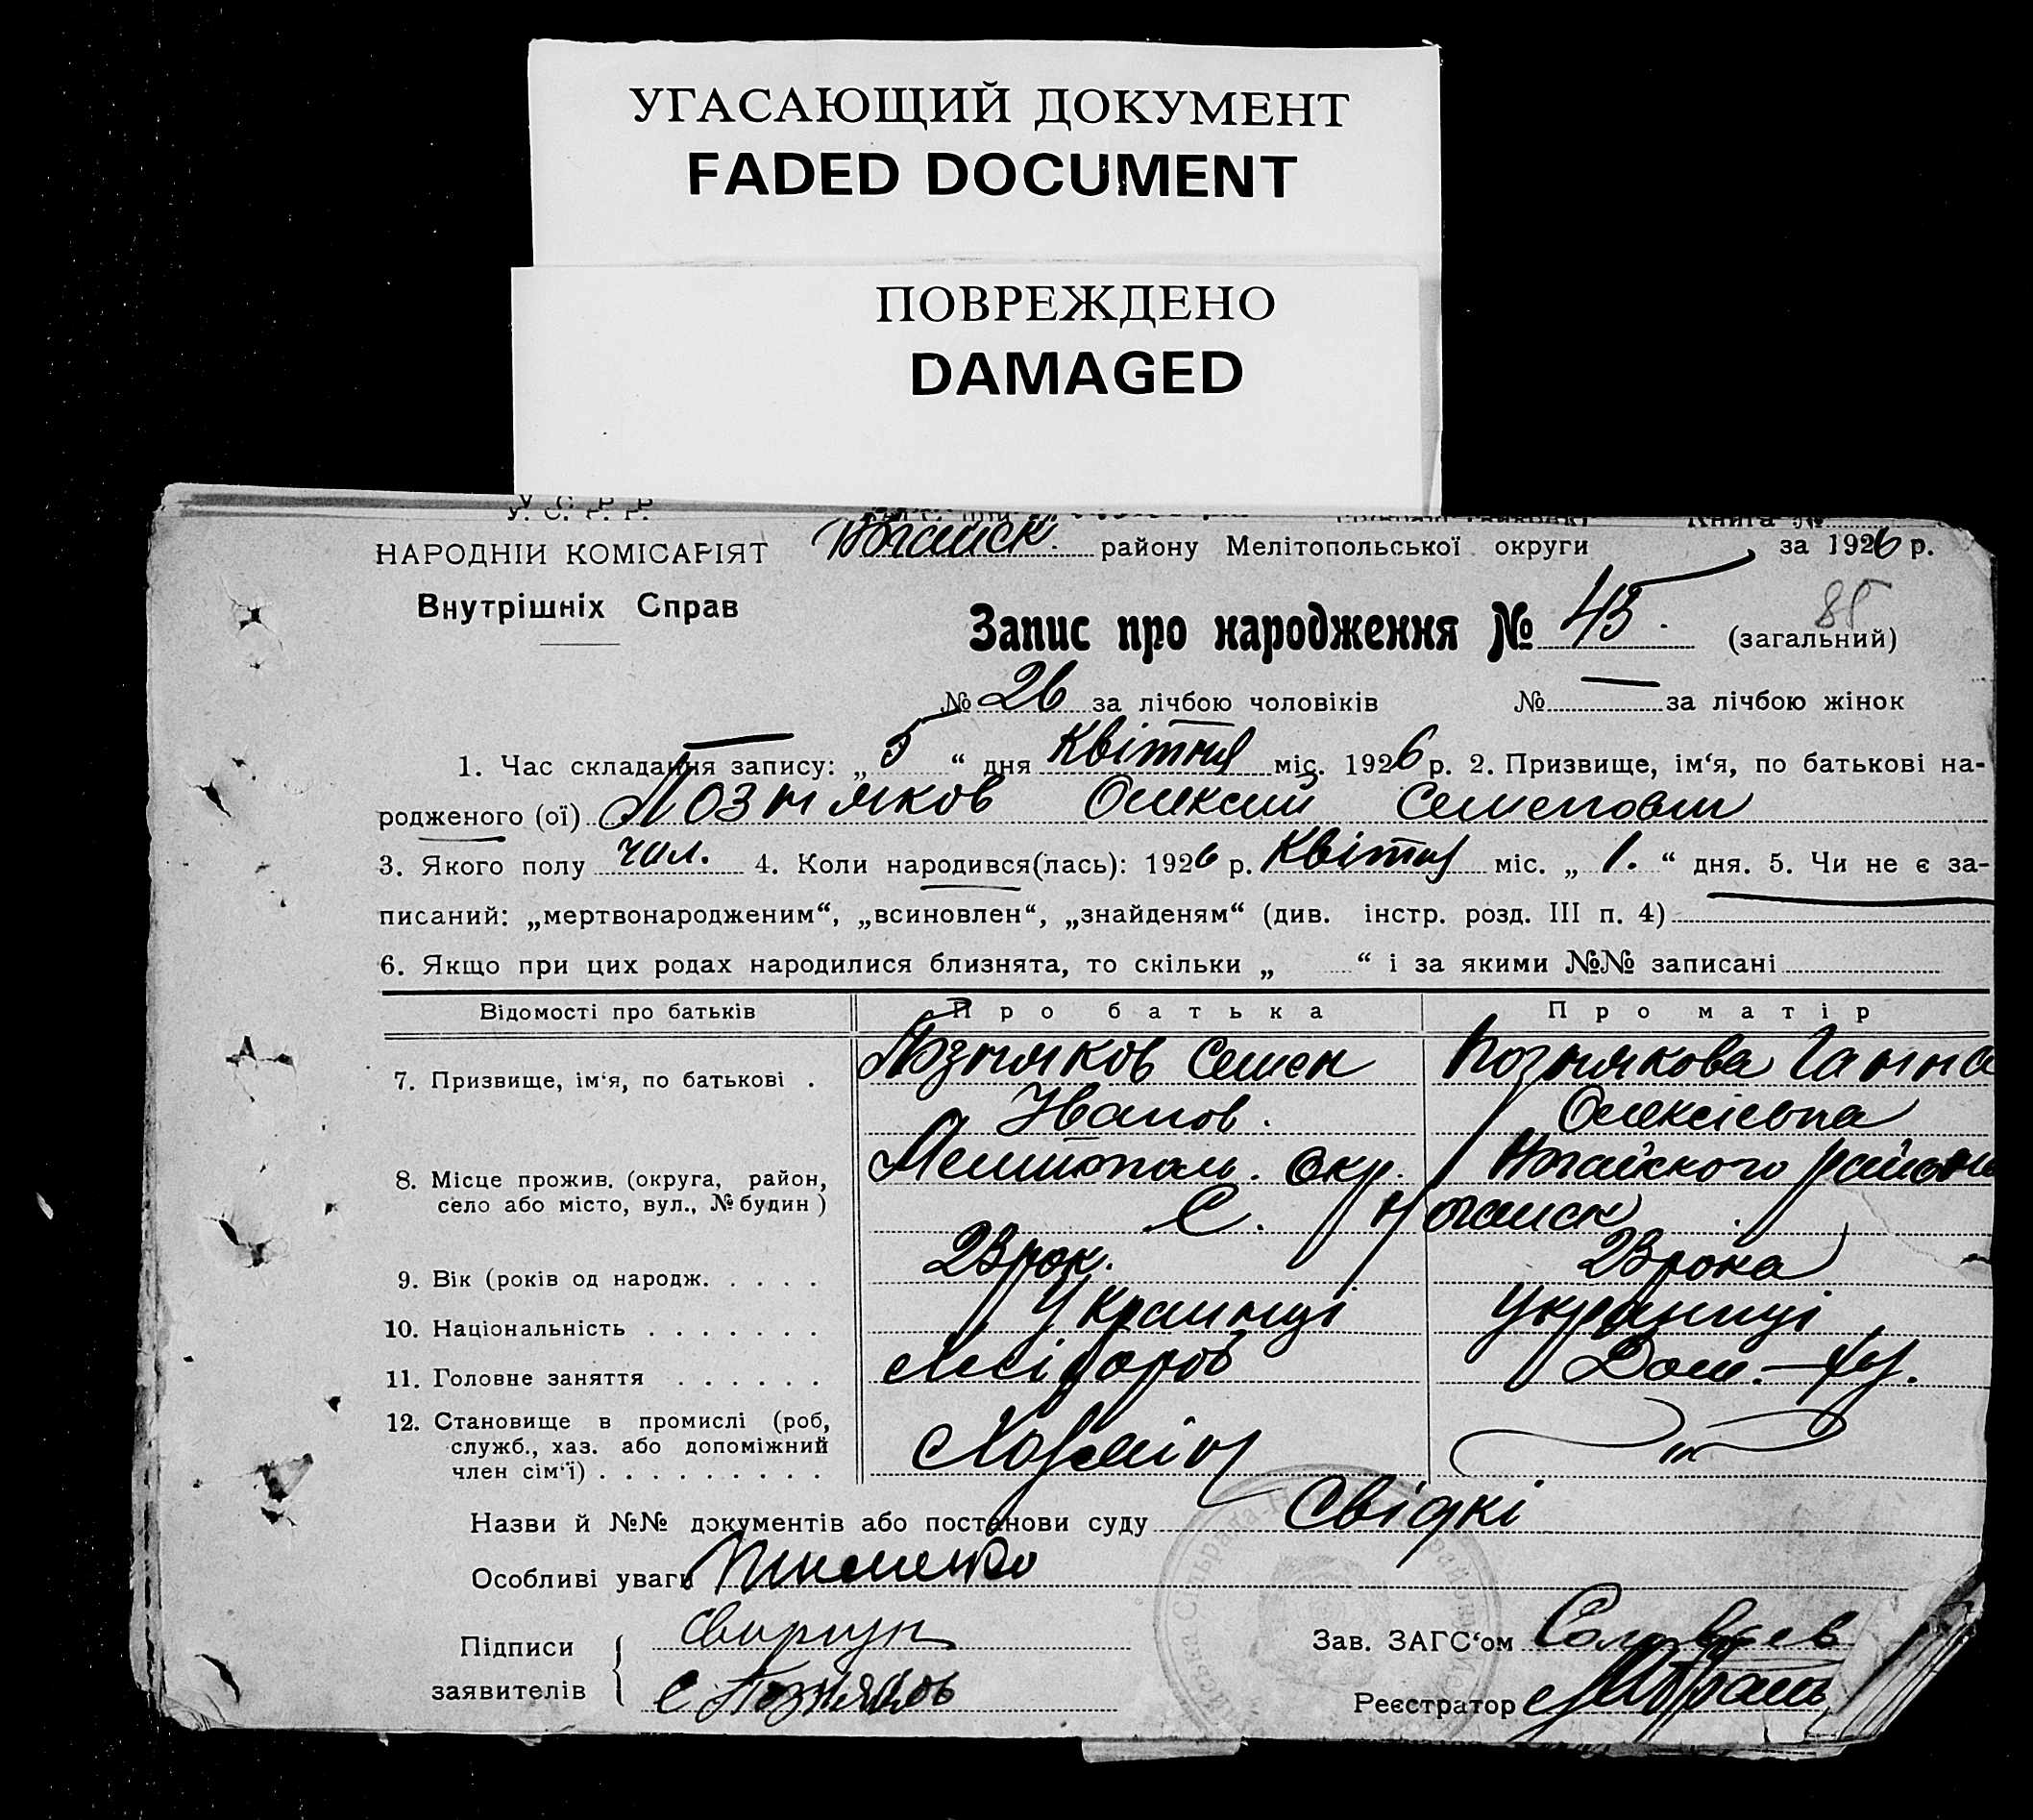 УГАСАЮЩИЙ ДОКУМЕНТ
FADED DOCUMENT
ПОВРЕЖДЕНО
DAMAGED
У. С. Р. Р.
Книга №
НАРОДНІЙ КОМІСАРІЯТ
Ногайськ. району Мелітопольської округи за 1926 р.
Внутрішніх Справ
85
Запис про народження № 45. (загальний)
№ 26 за лічбою чоловіків № — за лічбою жінок
1. Час складання запису: „ 5 “ дня Квітня міс. 1926 р. 2. Призвище, ім‘я, по батькові на-
родженого (ої) Позняков Олексий Семенович
3. Якого полу чол. 4. Коли народився(лась): 1926 р. Квітня міс. „ 1. “ дня. 5. Чи не є за-
писаний: „мертвонародженим“, „всиновлен“, „знайденям“ (див. інстр. розд. III п. 4)
6. Якщо при цих родах народилися близнята, то скільки „ “ і за якими №№ записані
Відомості про батьків Про батька Про матір
7. Призвище, ім‘я, по батькові . Позняков Семен Познякова Ганна
Иванов. Олексієвна
8. Місце прожив. (округа, район, Мелитополь. Окр. Ногайского району
село або місто, вул., № будин ) С. Ногайск
9. Вік (років од народж. . . . . 23 рок. 23 рока
10. Національність . . . . . . . Украинці Украинці
11. Головне заняття . . . . . . Дом. —
12. Становище в промислі (роб,
служб., хаз. або допоміжний
член сім‘ї) . . . . . . . . . Хазяін
Назви й №№ документів або постанови суду Свідкі
Особливі уваги
Підписи Зав. ЗАГС‘ом Соловьев
заявителів С Позняков Реєстратор